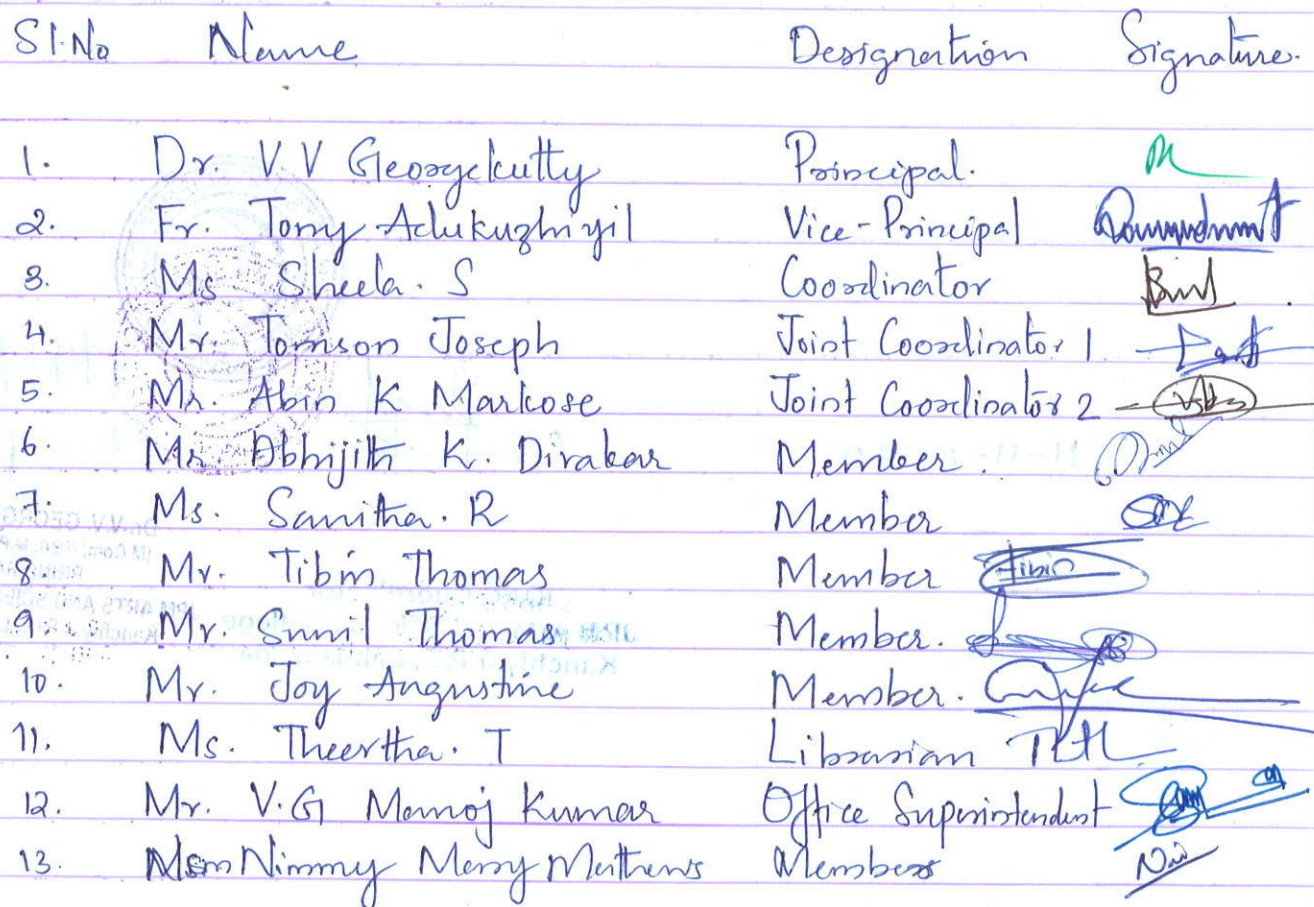 Sl.No Name Designation Signature.
1. Dr. V. V Georgekutty Principal.
2. Fr. Tomy Adukuzhiyil Vice-Principal
3. Ms Sheela. S Coordinator
4. Mr. Tomson Joseph Joint Coordinator 1
5. Mr. Abin K Markose Joint Coordinator 2
6. Mr. Abhijith K. Divakar Member.
7. Ms. Sanitha. R Member
8 Mr. Tibin Thomas Member Tibin
9. Mr. Sunil Thomas Member.
10. Mr. Joy Augustine Member.
11. Ms. Theertha. T Librarian
12. Mr. V.G Manoj Kumar Office Superintendent
13. Nimmy Mery Mathews Member